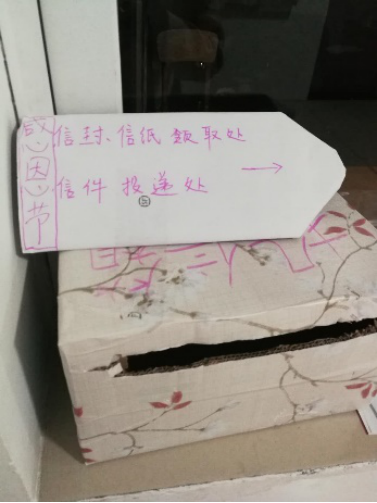 感恩节
信封、信纸领取处
→
信件投递处